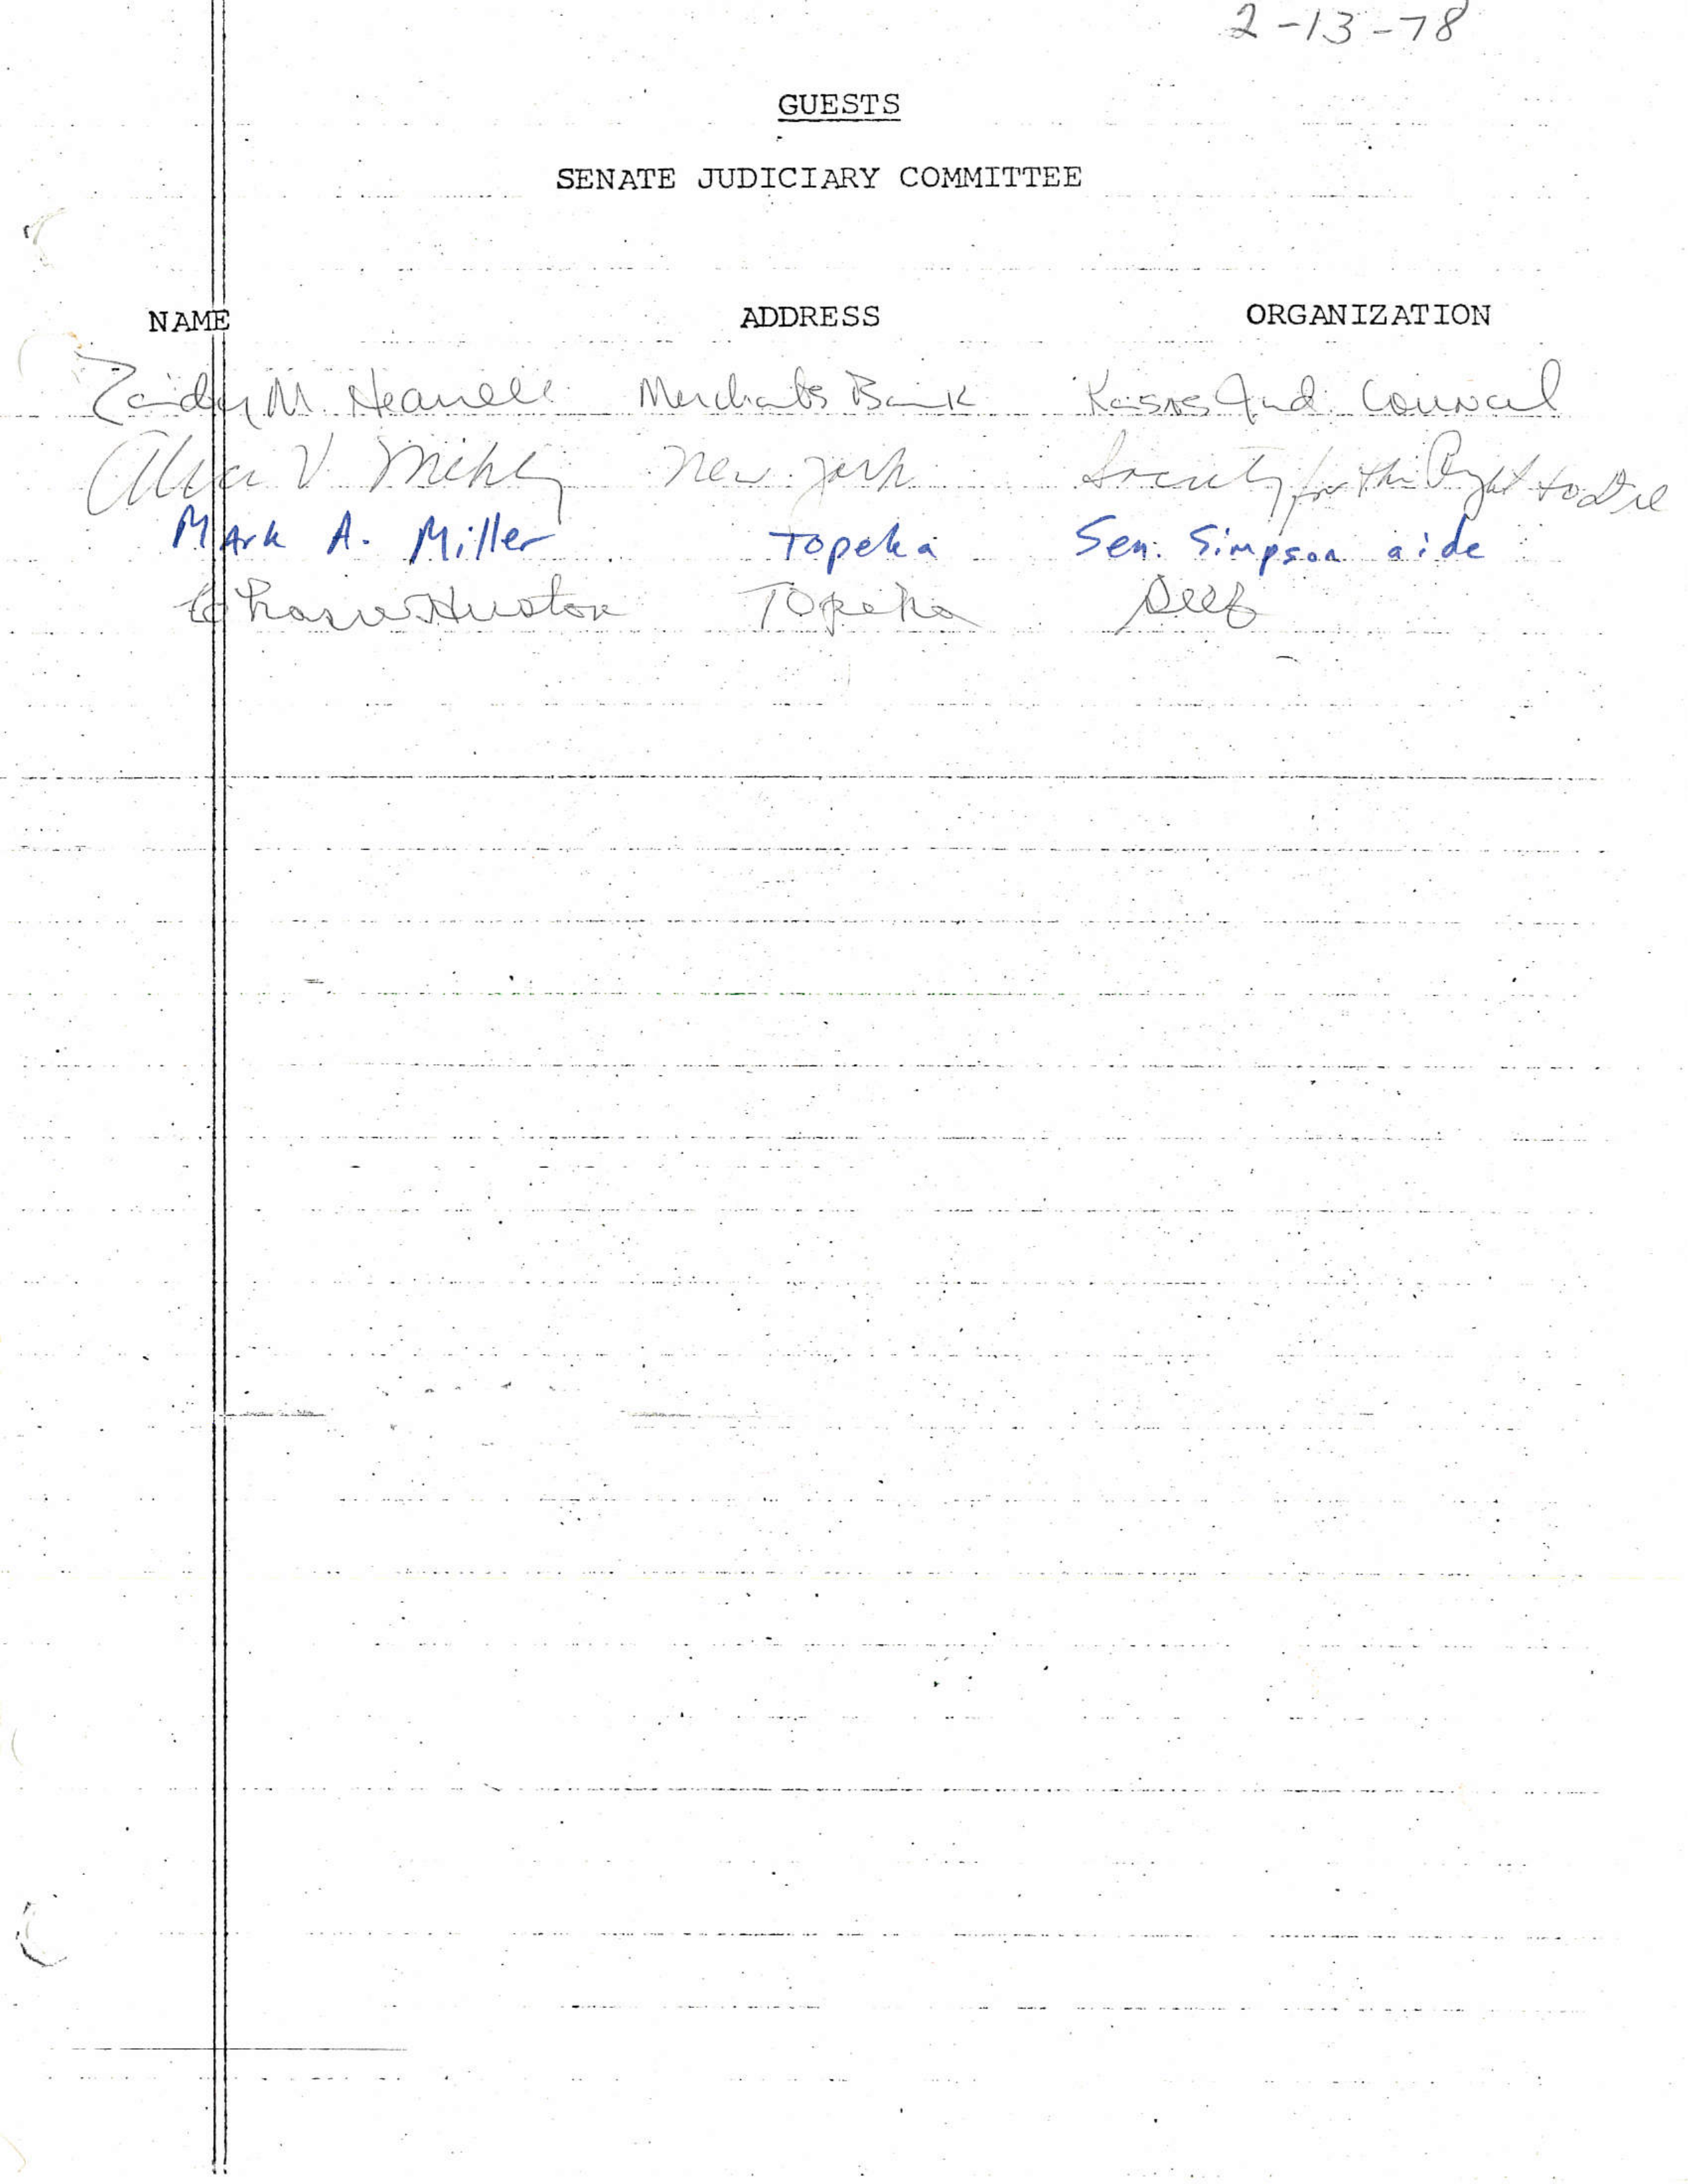 2-13-78
GUESTS
SENATE JUDICIARY COMMITTEE
NAME ADDRESS ORGANIZATION
M. Merchants Bank Kansas Jud. Council
V. New York Society for the Right to Die
Mark A. Miller Topeka Sen. Simpson aide
Huston Topeka Self